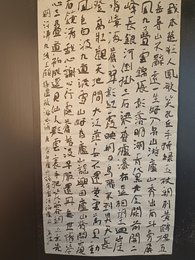 我本楚狂人鳳歌笑孔丘手持綠玉杖朝別黃鶴樓五
岳尋仙不辭遠一生好入名山遊廬山秀出南斗傍屏
風九疊雲錦張影落明湖青黛光金闕前開二
峰長銀河倒挂三石梁香爐瀑布遙相望迴崖
沓嶂凌蒼蒼翠影紅霞映朝日鳥飛不到吳天長登
高壯觀天地間大江茫茫去不還黃雲萬里動
風色白波九道流雪山好為廬山謠興因廬山發閑窺
石鏡清我心謝公行處蒼苔沒早服還丹無世情琴
心三疊道初成遙見仙人彩雲裏手把芙蓉朝玉
京先期汗漫九垓上願接盧敖遊太清